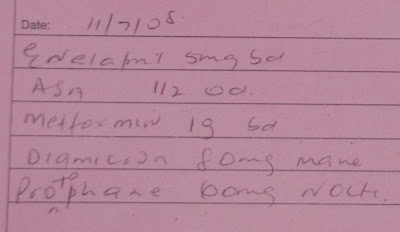 Date: 11/7/05.
Enelapril 5mg bd
ASA 1/2 od.
Metformin 1g bd
Diamicron 80mg mane
Protophane 60mg Nocte.